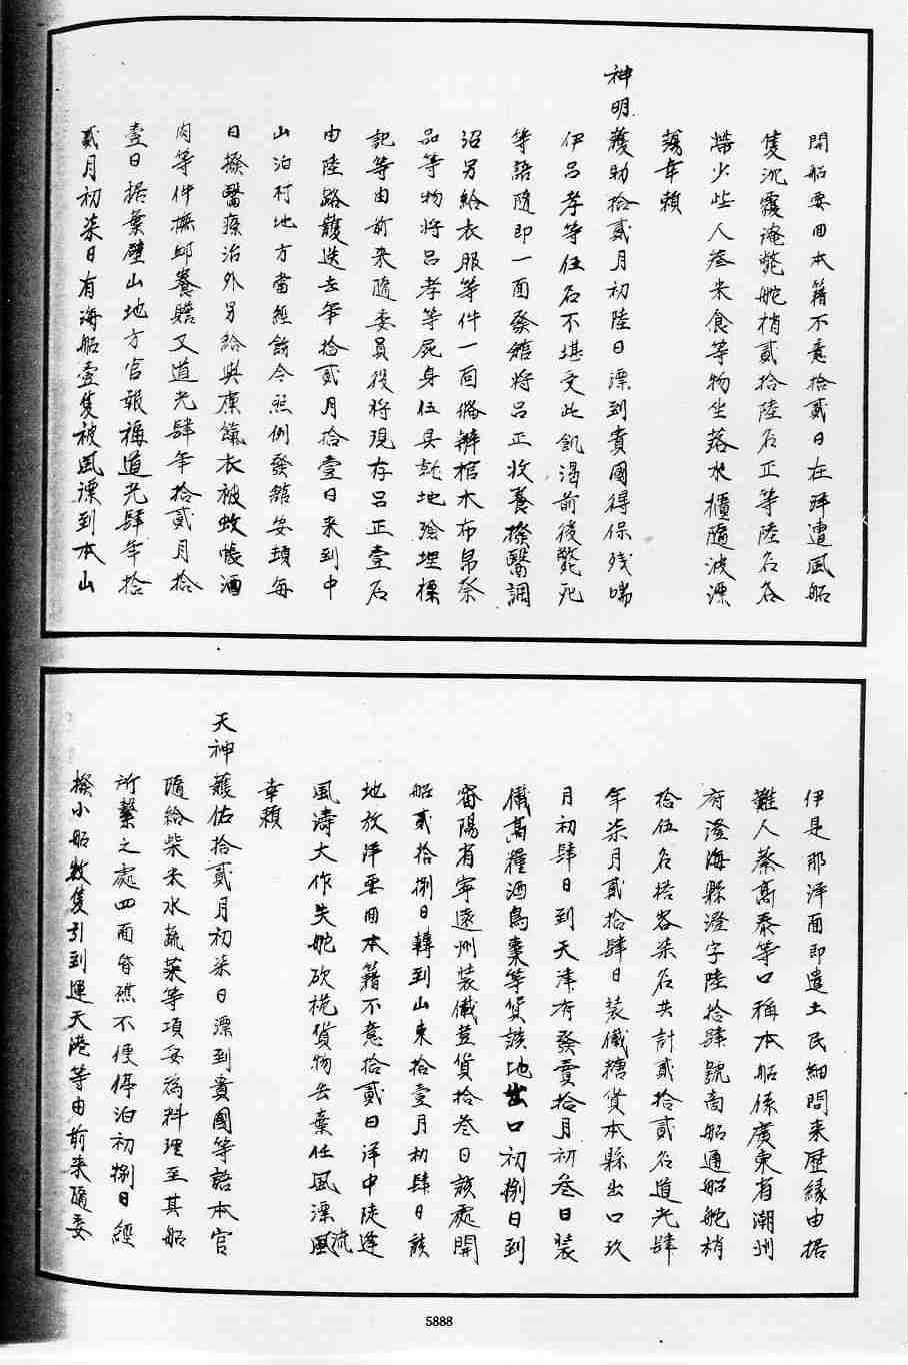 開船要回本籍不意拾貳日在洋遭風船
隻沉覆淹斃舵梢貳拾陸名正等陸名各
帶少些人參米食等物坐落水櫃隨波漂
蕩幸賴
神明護助拾貳月初陸日漂到貴國得保殘喘
伊呂孝等伍名不堪受此飢渴前後斃死
等語隨即一面發館將呂正收養撥醫調
治另給衣服等件一面備辦棺木布帛祭
品等物將呂孝等屍身伍具就地殮埋標
記等由前來隨委員役將現存呂正壹名
由陸路護送去年拾貳月拾壹日來到中
山泊村地方當經飭令照例發館安頓每
日撥醫療治外另給與廩餼衣被蚊帳酒
肉等件撫卹養贍又道光肆年拾貳月拾
壹日據葉壁山地方官報稱道光肆年拾
貳月初柒日有海船壹隻被風漂到本山
伊是那洋面即遣土民細問來歷緣由據
難人蔡高泰等口稱本船係廣東省潮州
府澄海縣澄字陸拾肆號商船通船舵梢
拾伍名搭客柒名共計貳拾貳名道光肆
年柒月貳拾肆日裝儎糖貨本縣出口玖
月初肆日到天津府發賣拾月初叁日裝
儎高糧酒烏棗等貨該地出口初捌日到
審陽省寧遠州裝儎荳貨拾叁日該處開
船貳拾捌日轉到山東拾壹月初肆日該
地放洋要回本籍不意拾貳日洋中陡逢
風濤大作失舵砍桅貨物丟棄任風漂流
幸賴
天神護佑拾貳月初柒日漂到貴國等語本官
隨給柴米水蔬菜等項妥為料理至其船
所繫之處四面皆礁不便停泊初捌日經
撥小船數隻引到運天港等由前來隨委
5888